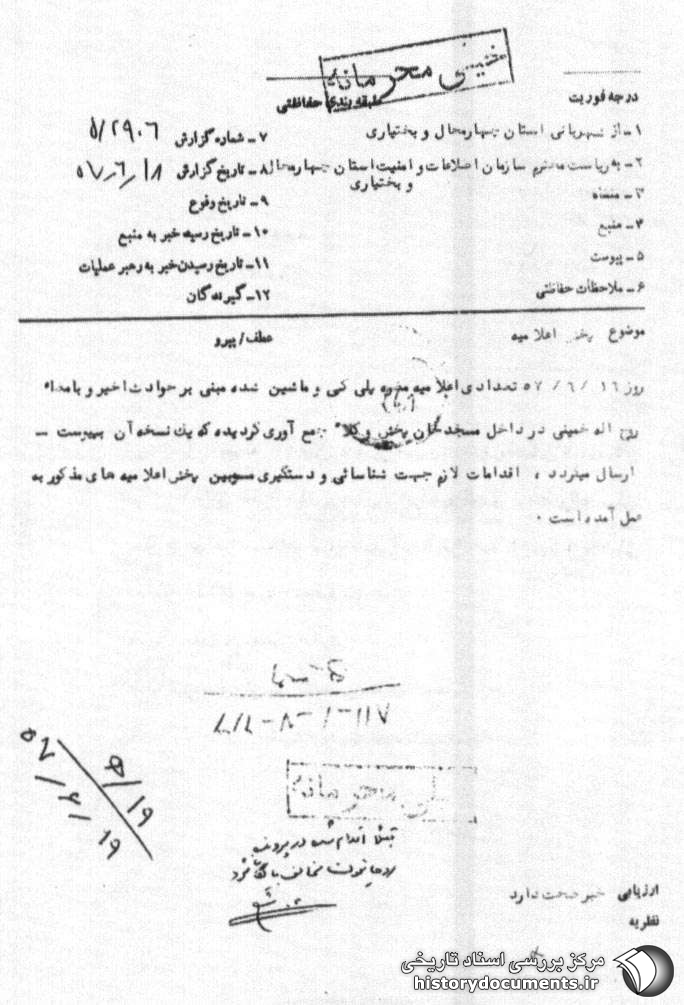 خیلی محرمانه
درجه فوریت
طبقه بندی حفاظتی
۱ـ از شهربانی استان چهارمحال و بختیاری
۷ـ شماره گزارش ۵/۲۹۰۶
۲ـ به ریاست محترم سازمان اطلاعات و امنیت استان چهارمحال و بختیاری
۸ـ تاریخ گزارش ۵۷/۶/۱۸
۳ـ
۹ـ تاریخ وقوع
۴ـ منبع
۱۰ـ تاریخ رسیدن خبر به منبع
۵ـ پیوست
۱۱ـ تاریخ رسیدن خبر به رهبر عملیات
۶ـ ملاحظات حفاظتی
۱۲ـ گیرندگان
موضوع پخش اعلامیه
عطف/پیرو
روز ۱۶ / ۶ / ۵۷ تعدادی اعلامیه پلی کپی و ماشین شده مبنی بر حوادث اخیر و بامضاء
روح اله خمینی در داخل مسجد خان پخش و کلا" جمع آوری گردیده که یک نسخه آن پیوست ـ
ارسال میگردد ، اقدامات لازم جهت شناسائی و دستگیری مسببین پخش اعلامیه های مذکور به
عمل آمده است .
خیلی محرمانه
۵/۱۹
۵۷/۶/۱۹
ارزیابی خبر صحت دارد
نظریه
مرکز بررسی اسناد تاریخی
historydocuments.ir